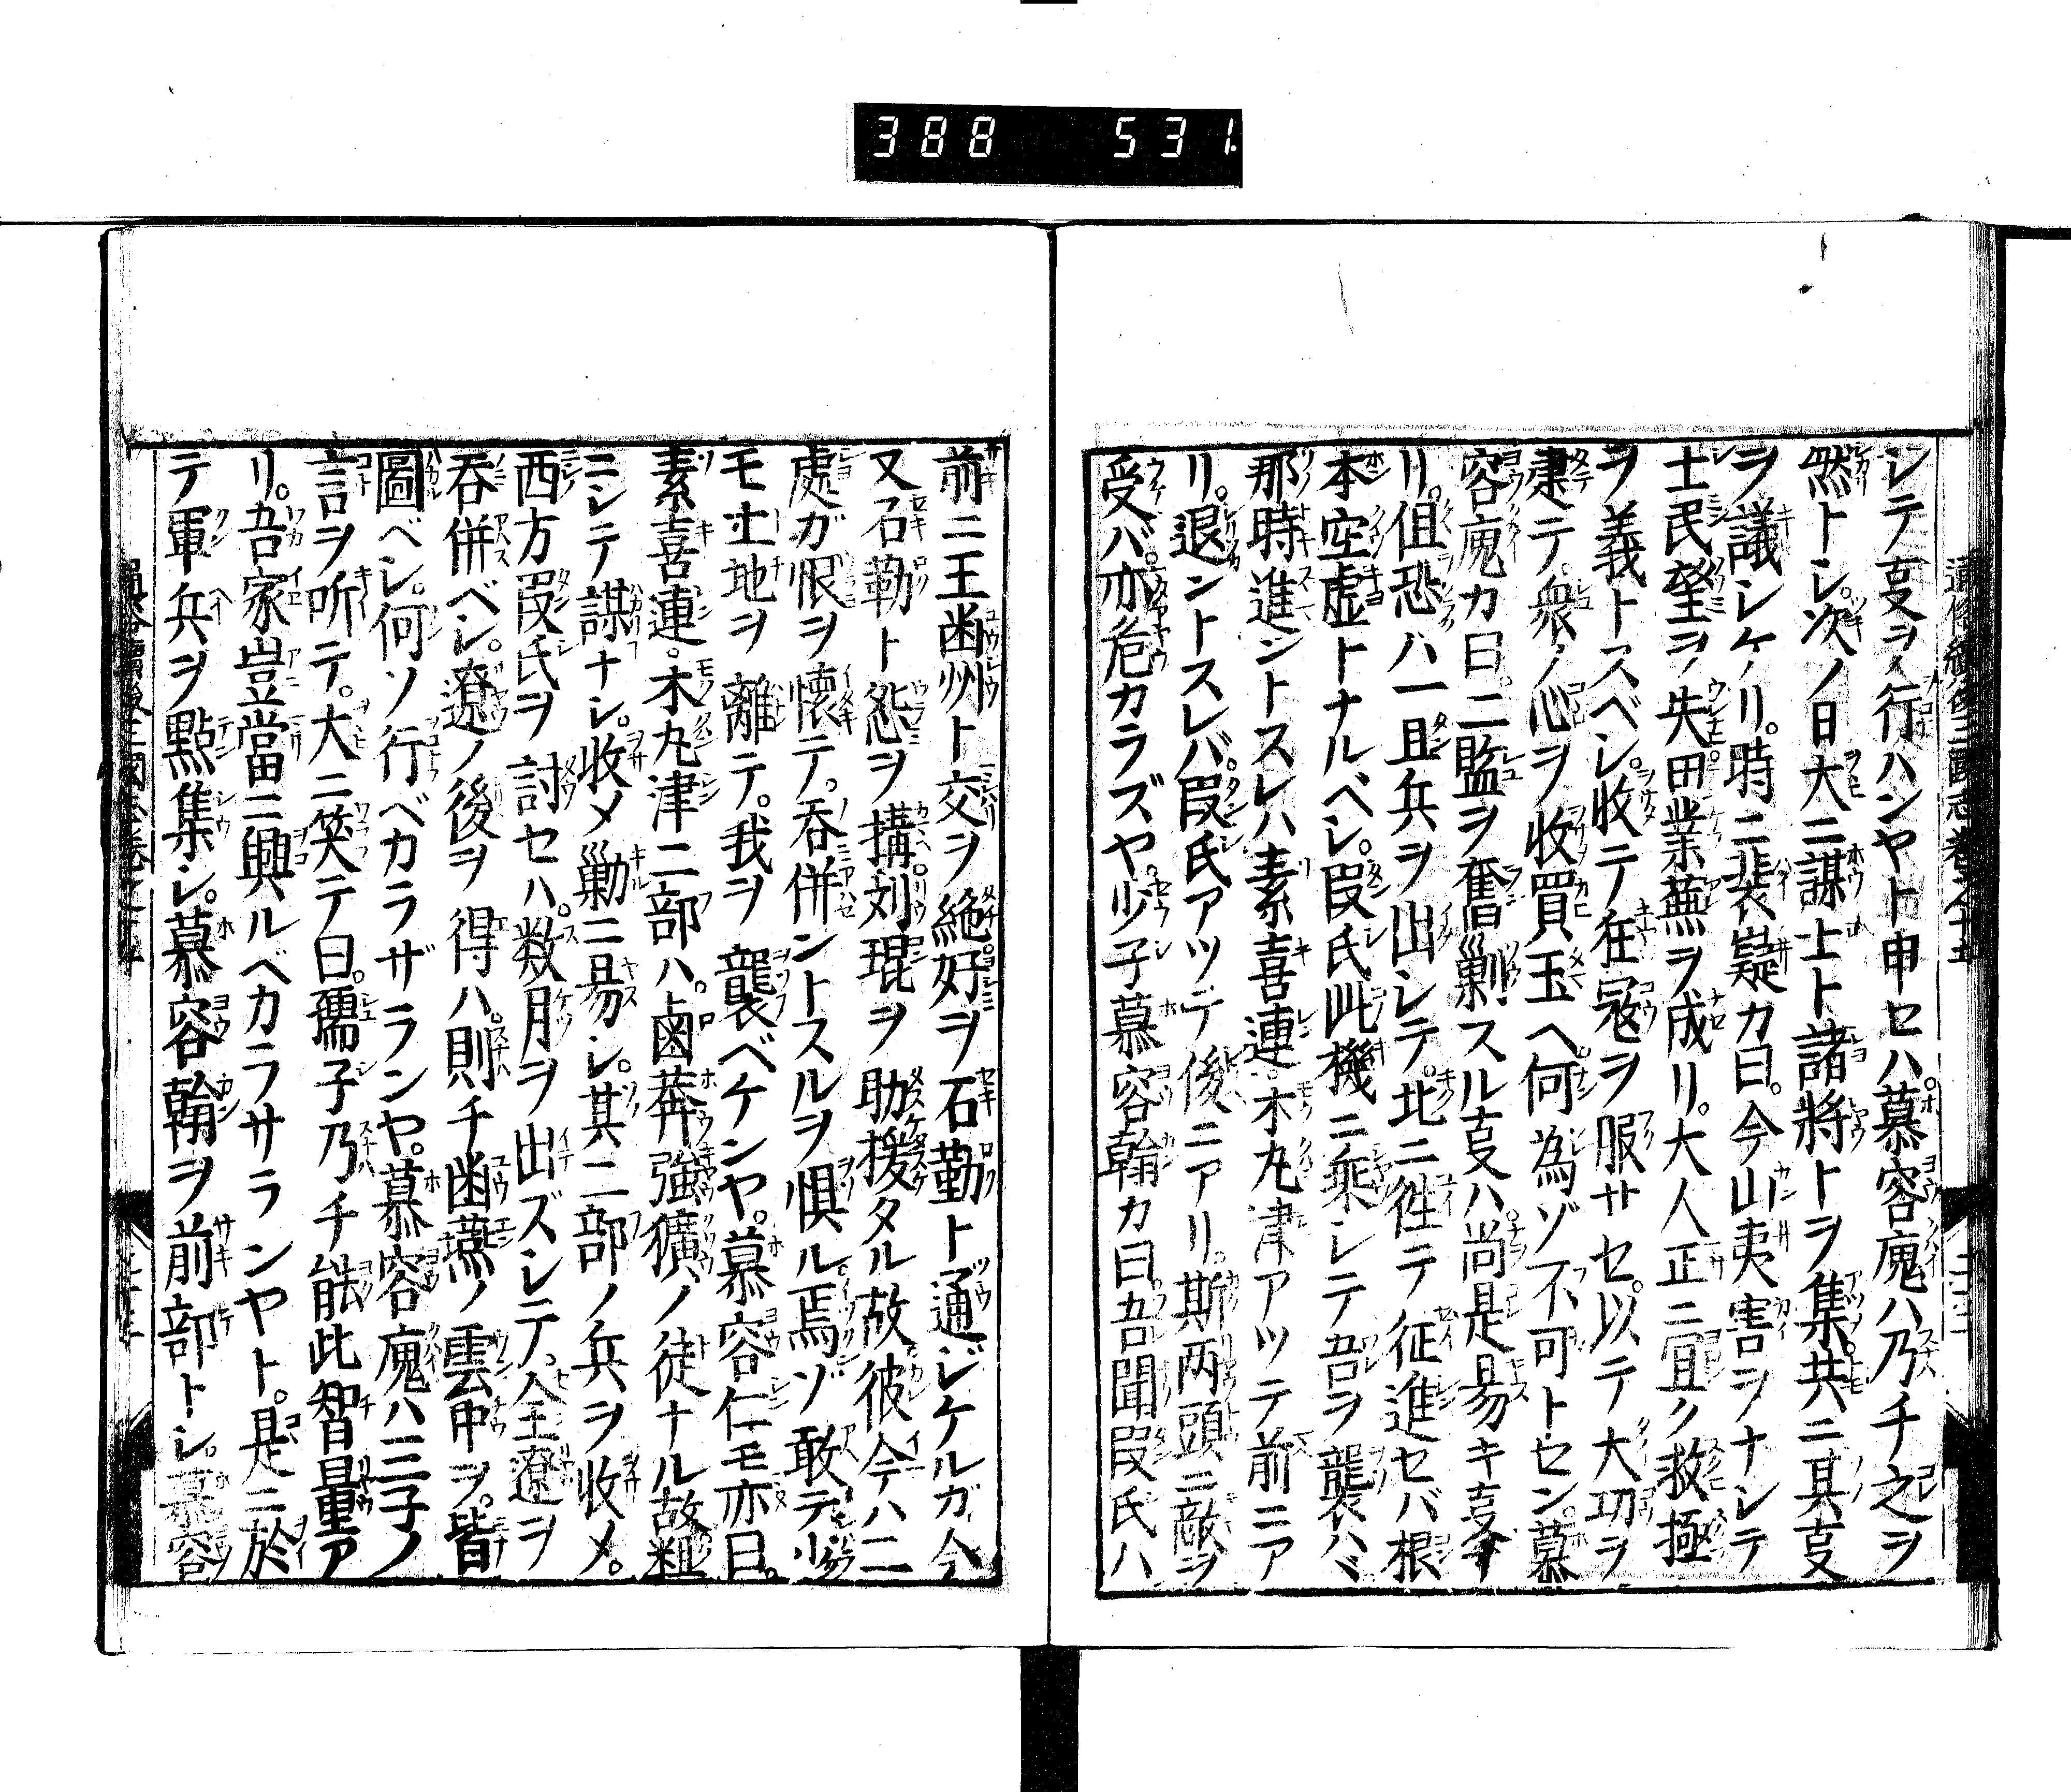 388 531.
通俗續後三國志卷之十五
シテ叓ヲ行ハンヤト申セハ。慕容廆ハ乃チ之ヲ
然トシ。次ノ日大ニ謀士ト諸將トヲ集。共ニ其叓
ヲ議シケリ。時ニ裴嶷カ曰。今山夷害ヲナシテ
士民望ヲ失。田業蕪ヲ成リ。大人正ニ宜ク救極
ヲ義トスベシ。收テ狂寇ヲ服サセ。以テ大功ヲ
建テ。衆ノ心ヲ收買玉ヘ何為ゾ不可トセン。慕
容廆カ曰。二盬ヲ奮剿スル叓ハ尚是易キ叓ナ
リ。但恐ハ一旦兵ヲ出シテ。北ニ徃テ征進セバ根
本空虚トナルベシ。叚氏此機ニ乘シテ吾ヲ襲ハヾ
那時進ントスレハ素喜連。木丸津アツテ前ニア
リ。退ントスレバ。叚氏アツデ後ニアリ。斯两頭ニ敵ヲ
受バ。亦危カラズヤ。少子慕容翰カ曰。吾聞叚氏ハ
前ニ王㓜州ト交ヲ絶。好ヲ石勒ト通ジケルガ今
又石勒ト怨ヲ搆。刘琨ヲ助援タル故。彼今ハ二
處ガ恨ヲ懐テ。吞併ントスルヲ惧ル。焉ゾ敢テ少
モ土地ヲ離テ。我ヲ襲ベケンヤ。慕容仁モ亦曰。
素喜連。木丸津二部ハ。鹵莽強獷ノ徒ナル故粗
ニシテ謀ナシ。收メ勦ニ易シ。其二部ノ兵ヲ收メ。
西方叚氏ヲ討セハ。数月ヲ出ズシテ。全遼ヲ
吞併ベシ。遼ノ後ヲ得ハ。則チ幽燕ノ雲中ヲ。皆
圖ベシ。何ソ行ベカラザランヤ。慕容廆ハ三子ノ
言ヲ听テ。大ニ笑テ曰。孺子乃チ能此智量ア
リ。吾家豈當ニ興ルベカラサランヤト。是ニ於
テ軍兵ヲ點集シ。慕容翰ヲ前部トシ。慕容